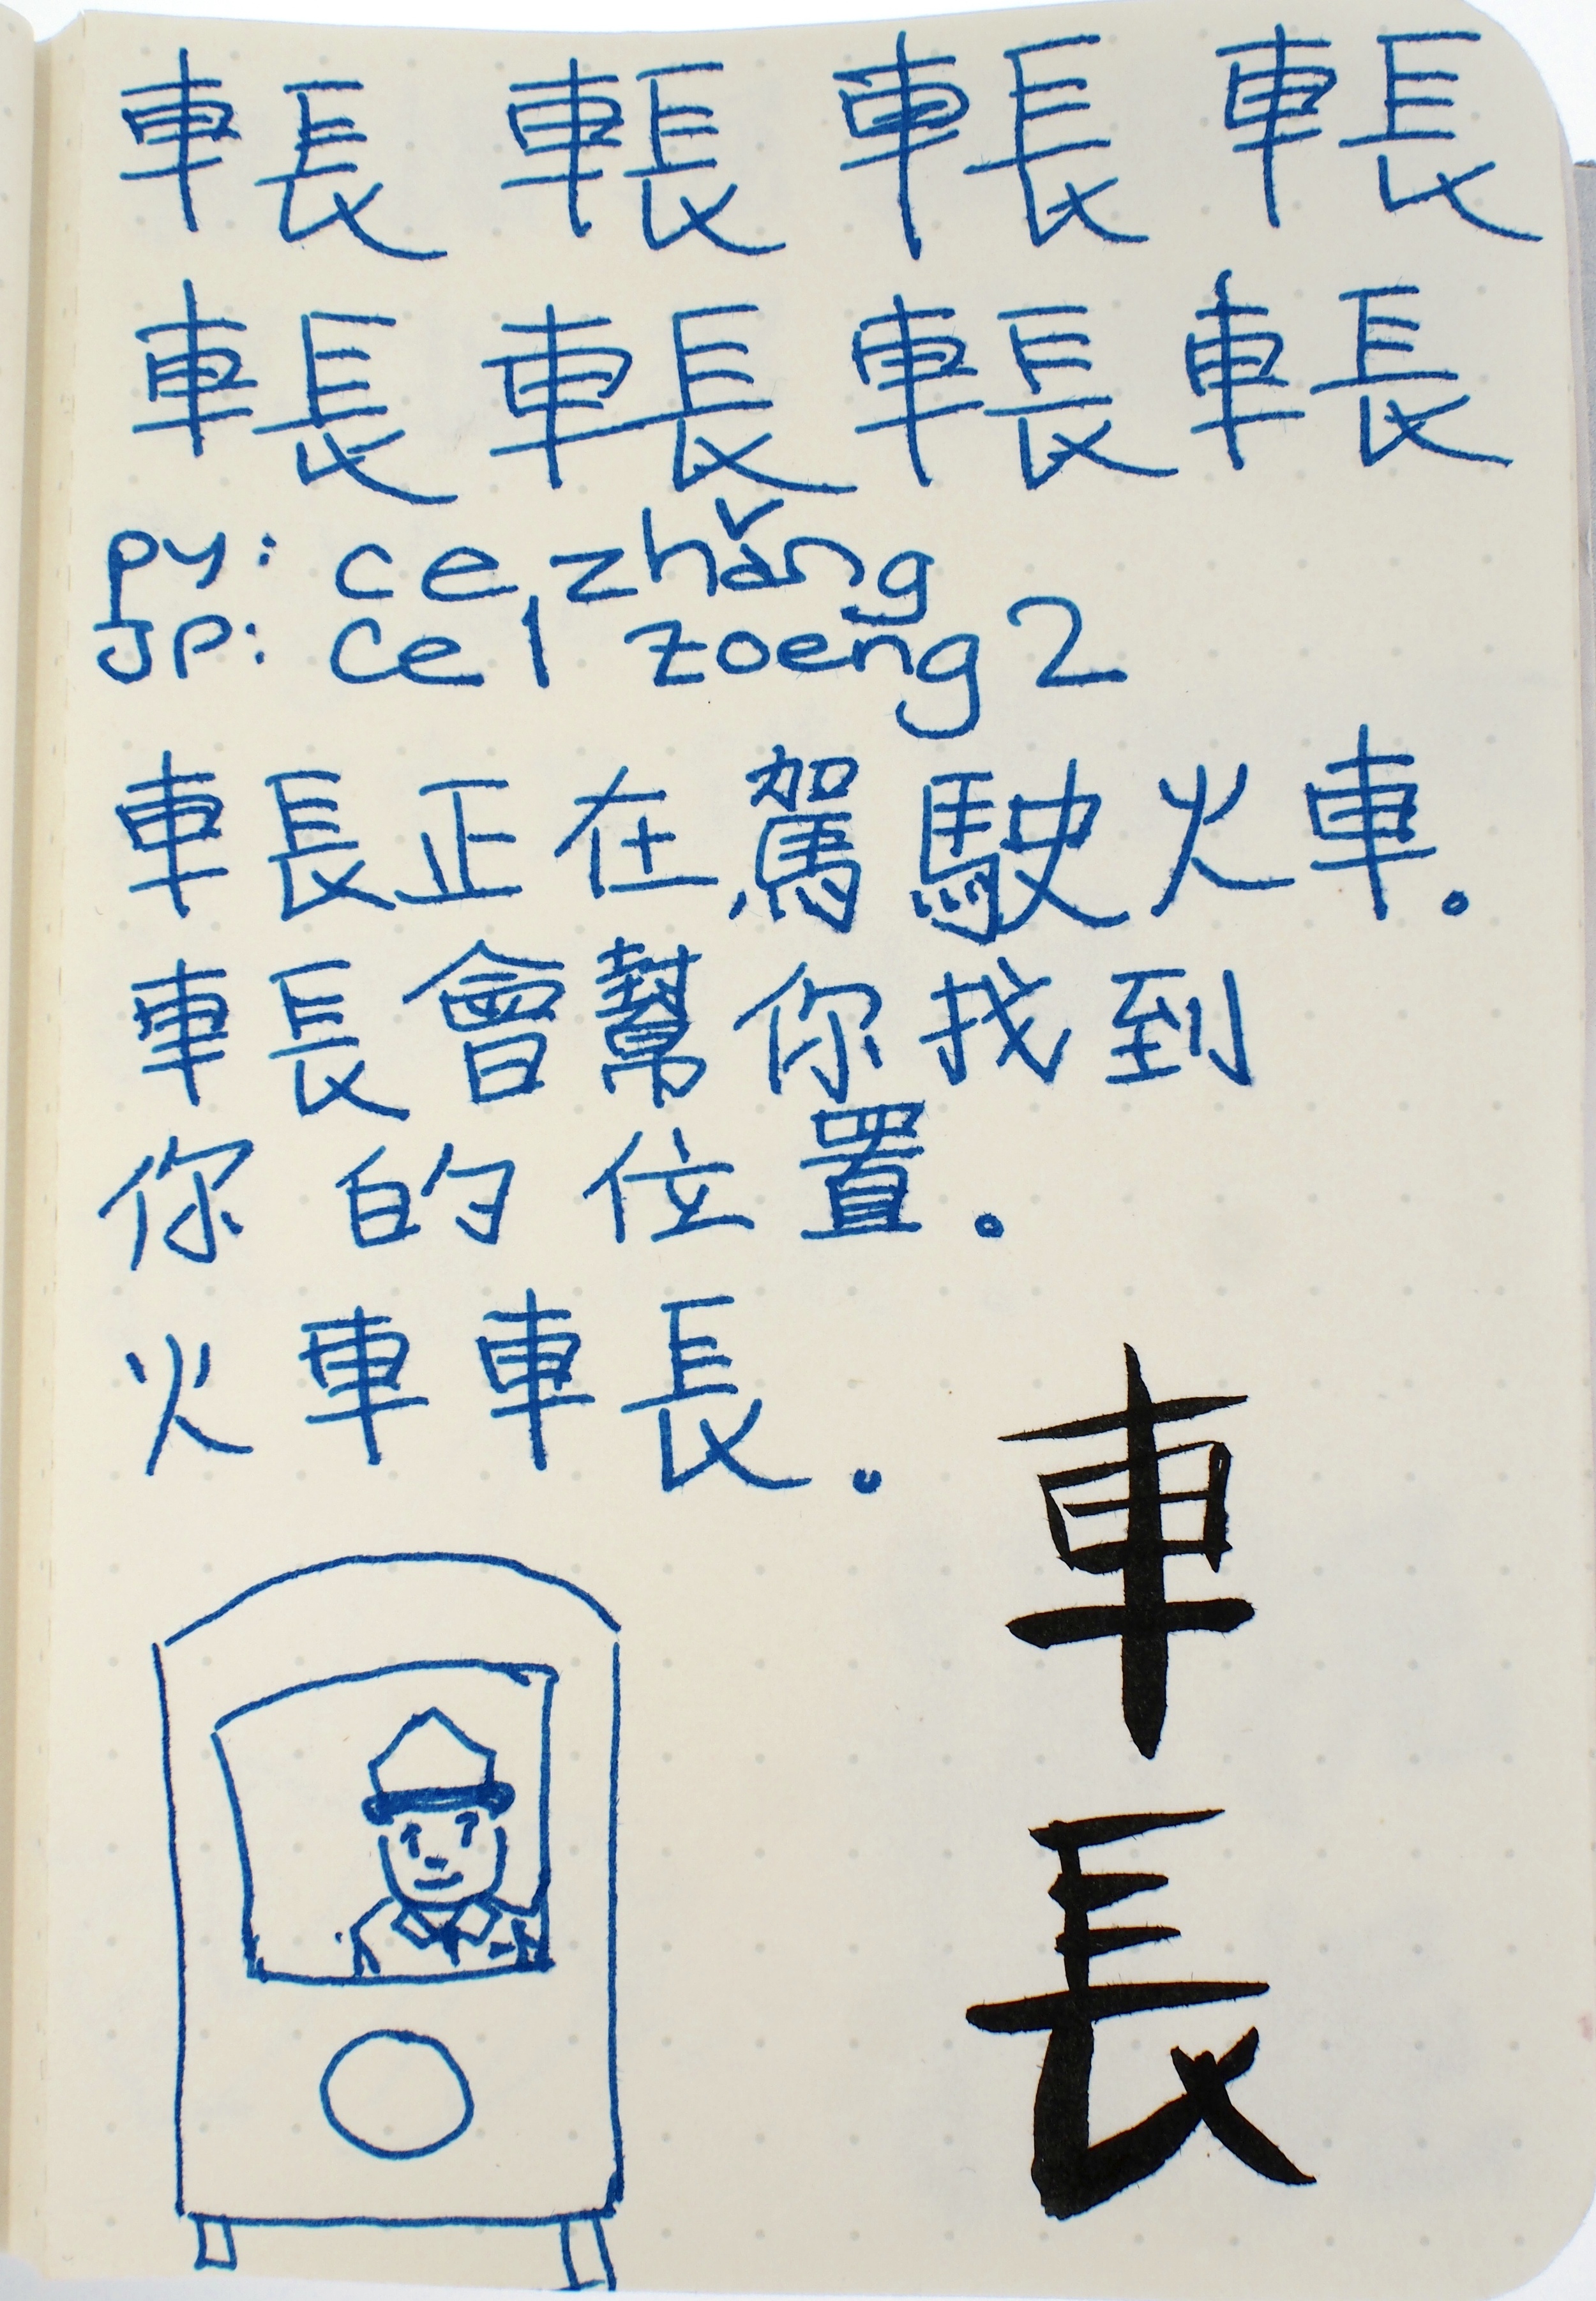 車長 車長 車長 車長
車長 車長 車長 車長
py: ce zhǎng
JP: ce1 zoeng2
車長正在駕駛火車。
車長會幫你找到
你的位置。
火車車長。
車
長